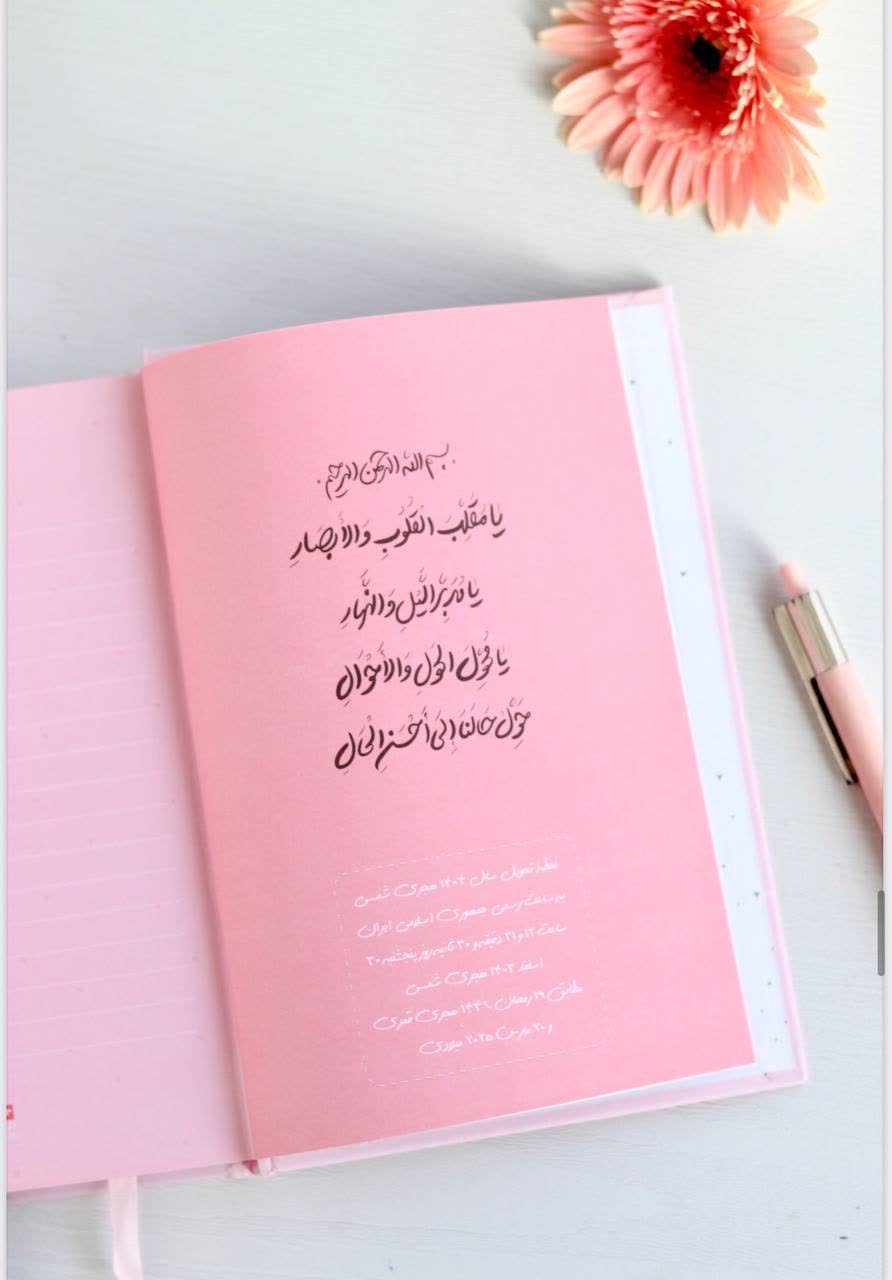 بسم الله الرحمن الرحیم
یَا مُقَلِّبَ الْقُلُوبِ وَالأَبْصَارِ
یَا مُدَبِّرَ اللَّیْلِ وَالنَّهَارِ
یَا مُحَوِّلَ الْحَوْلِ وَالأَحْوَالِ
حَوِّلْ حَالَنَا إِلَى أَحْسَنِ الْحَالِ
لحظه تحویل سال ۱۴۰۴ هجری شمسی
به ساعت رسمی جمهوری اسلامی ایران
ساعت ۱۲ و ۳۱ دقیقه و ۳۰ ثانیه روز پنجشنبه ۳۰
اسفند ۱۴۰۳ هجری شمسی
مطابق ۱۹ رمضان ۱۴۴۶ هجری قمری
و ۲۰ مارس ۲۰۲۵ میلادی